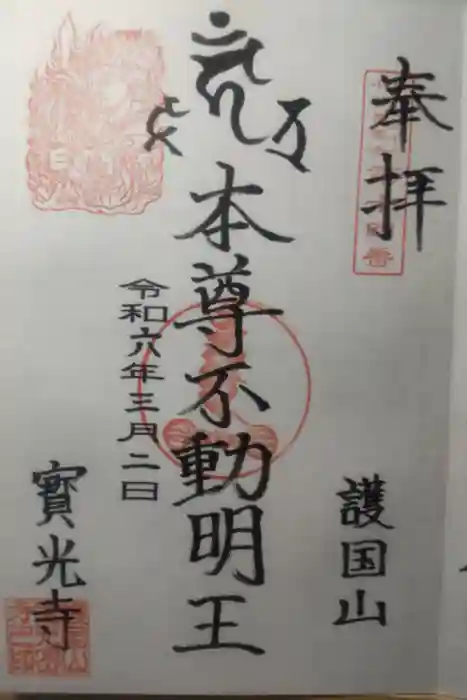 奉拝
護国山
本尊不動明王
令和六年三月二日
寳光寺